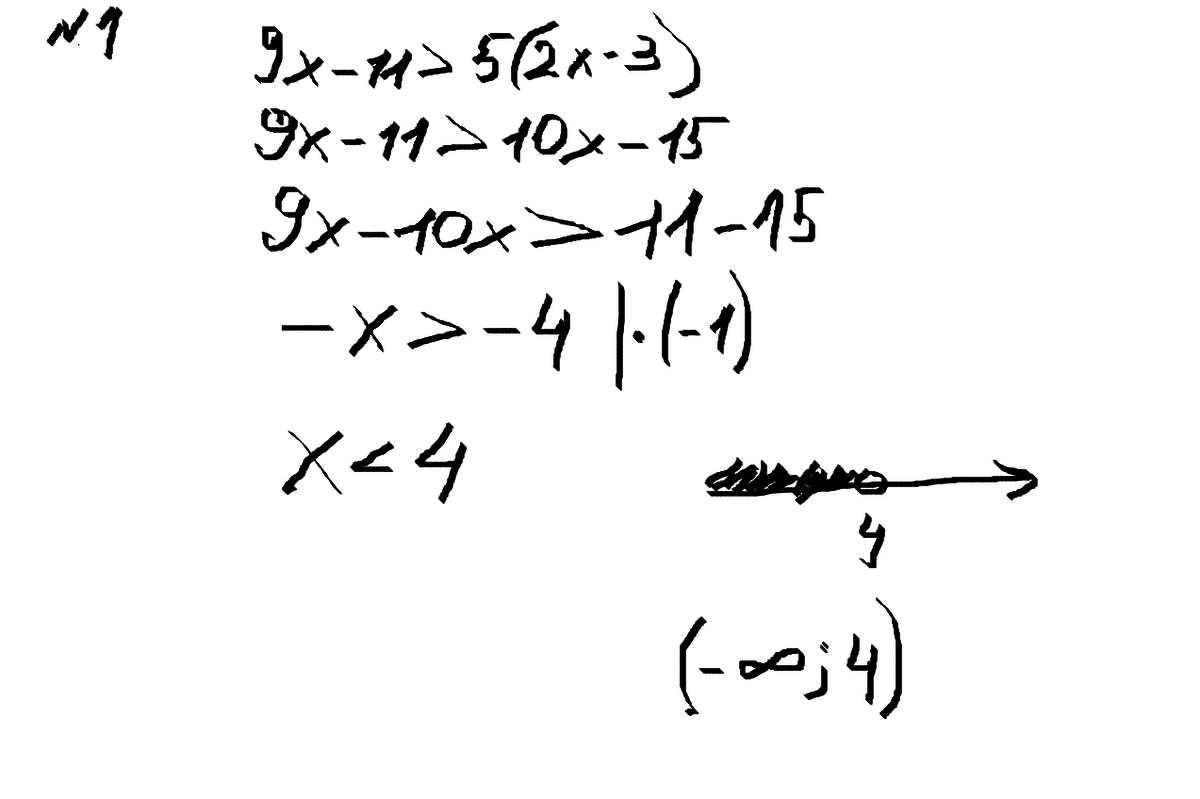 №1
9x-11> 5(2x-3)
9x-11>10x-15
9x-10x>11-15
-x>-4 |·(-1)
x<4
4
(-∞; 4)